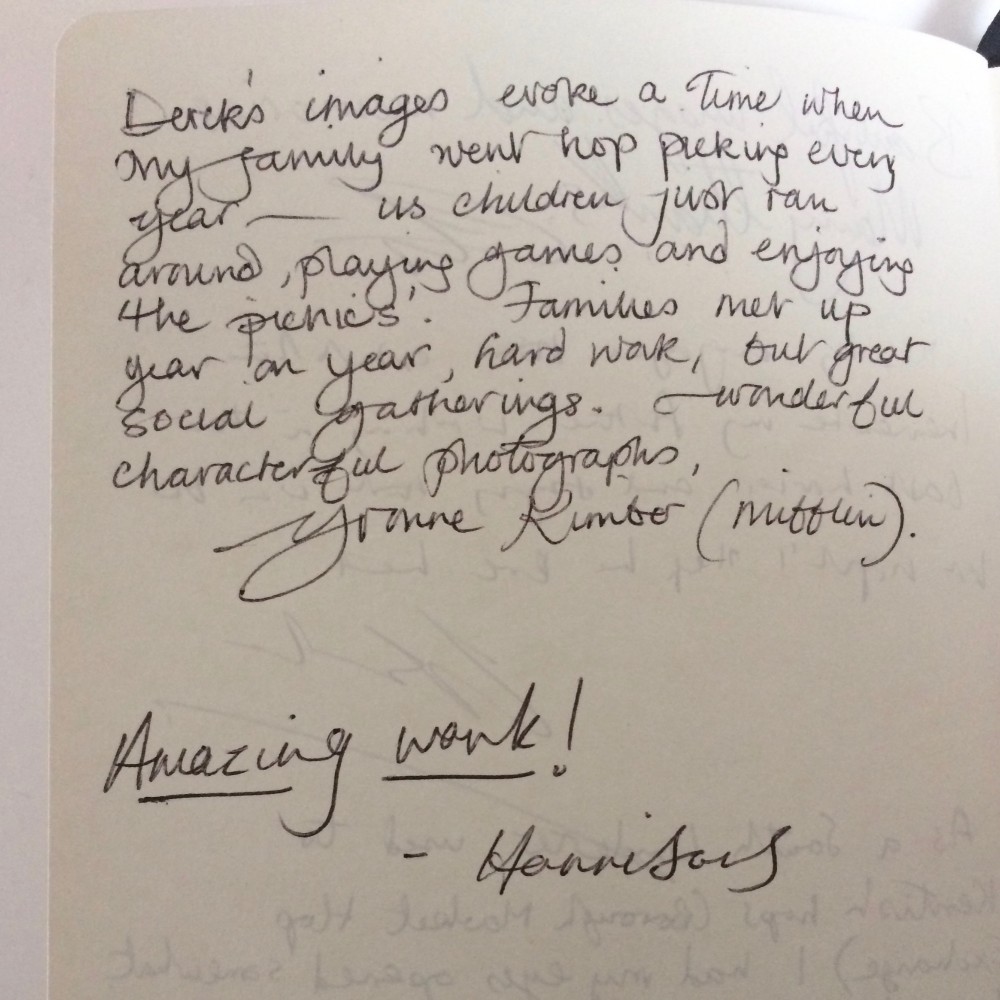 Derek's images evoke a time when
my family went hop picking every
year — us children just ran
around, playing games and enjoying
the 'picnics'. Families met up
year on year, hard work, but great
social gatherings. – wonderful
characterful photographs,
Yvonne (Mifflin).
Amazing work!
- Harrisons